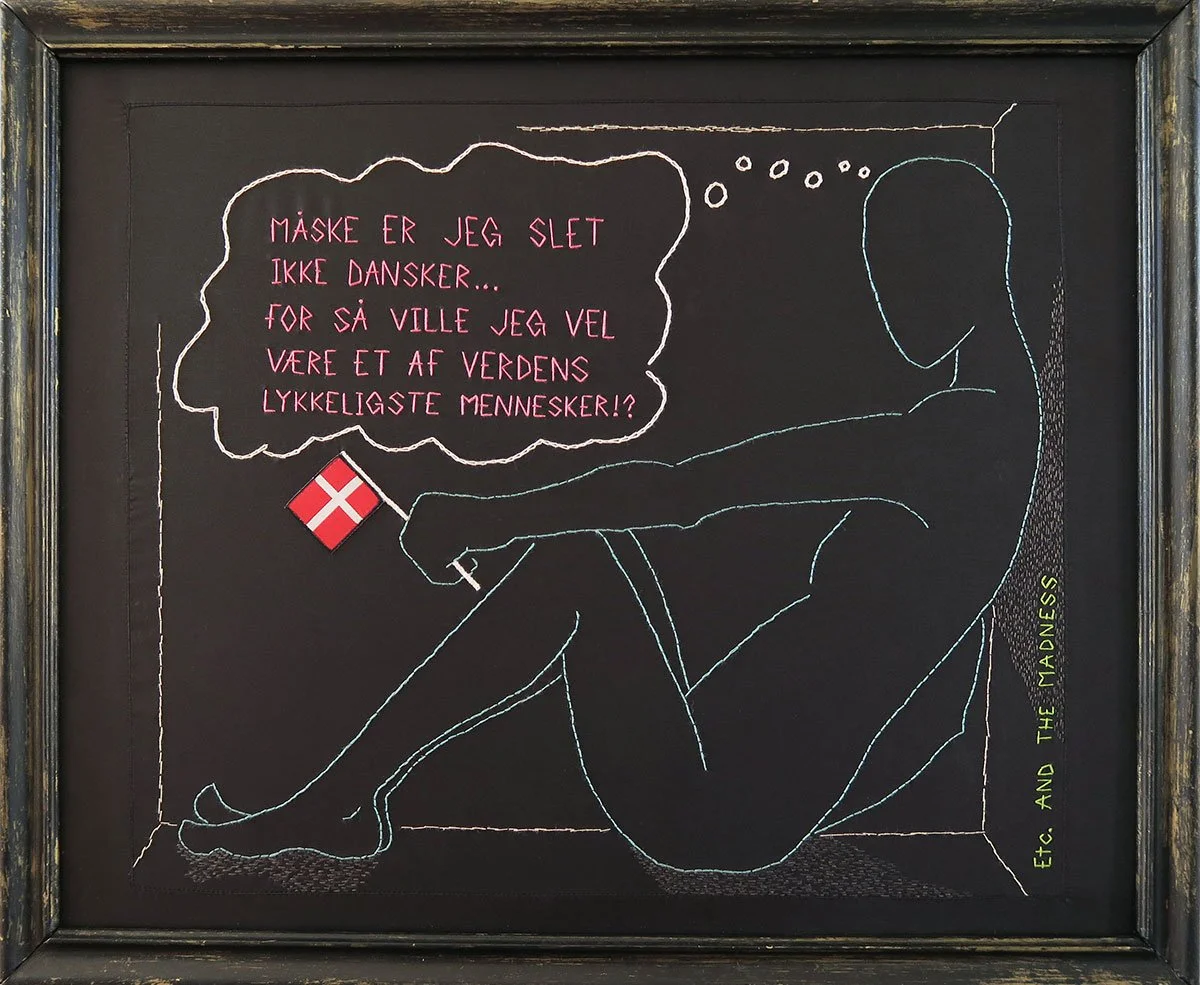 MÅSKE ER JEG SLET
IKKE DANSKER...
FOR SÅ VILLE JEG VEL
VÆRE ET AF VERDENS
LYKKELIGSTE MENNESKER!?
Etc. AND THE MADNESS